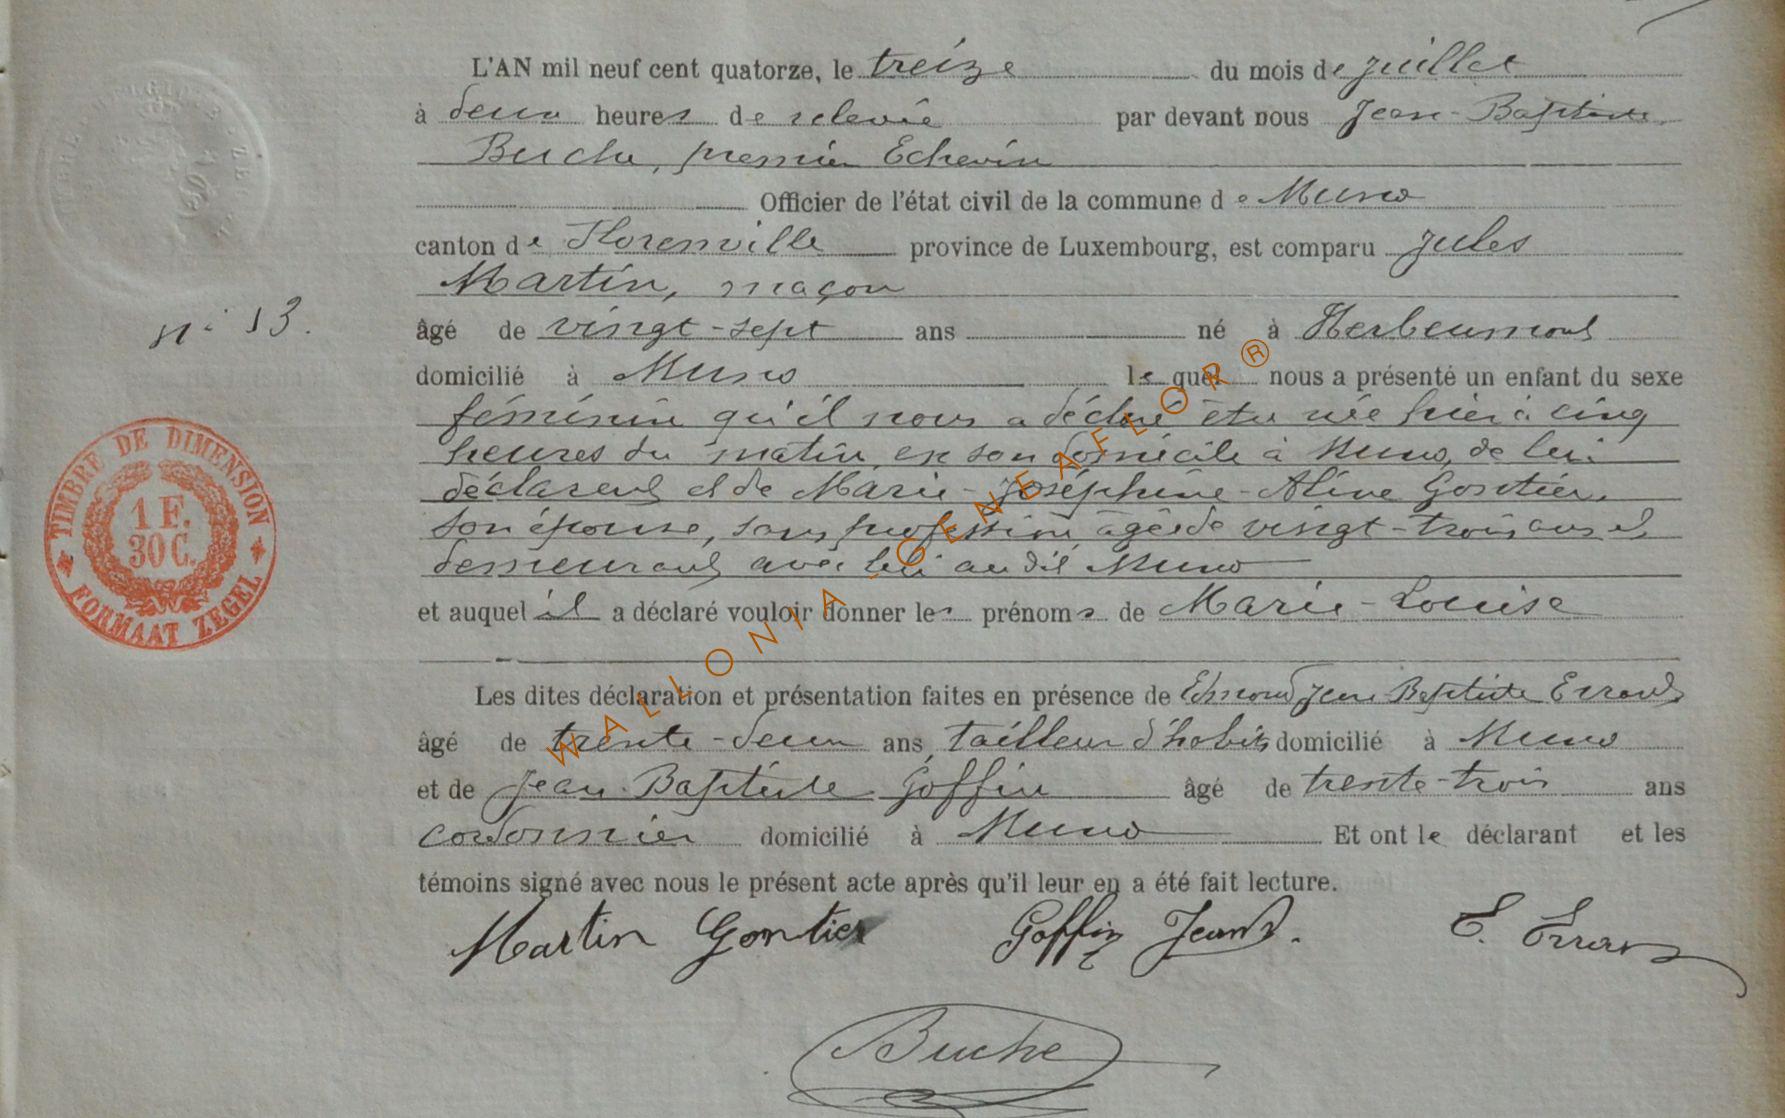 L'AN mil neuf cent quatorze, le treize du mois de juillet
à deux heures de relevée par devant nous Jean-Baptiste
Buche, premier Echevin
Officier de l'état civil de la commune de Muno
canton de Florenville province de Luxembourg, est comparu Jules
Martin, maçon
n° 13.
âgé de vingt-sept ans né à Herbeumont
domicilié à Muno lequel nous a présenté un enfant du sexe
féminin qu'il nous a déclaré être née hier à cinq
heures du matin, en son domicile à Muno, de lui
déclarant et de Marie-Joséphine-Aline Gontier,
son épouse, sans profession, âgée de vingt-trois ans et
demeurant avec lui au dit Muno
et auquel il a déclaré vouloir donner les prénoms de Marie-Louise
Les dites déclaration et présentation faites en présence de Edmond Jean-Baptiste Errard
âgé de trente-deux ans, tailleur d'habits domicilié à Muno
et de Jean-Baptiste Goffin âgé de trente-trois ans
cordonnier domicilié à Muno Et ont le déclarant et les
témoins signé avec nous le présent acte après qu'il leur en a été fait lecture.
Martin Gontier Goffin Jean B. E. Errard
Buche
TIMBRE DE DIMENSION
1 F.
30 C.
FORMAAT ZEGEL
WALLONIA-GENEAFLOR®